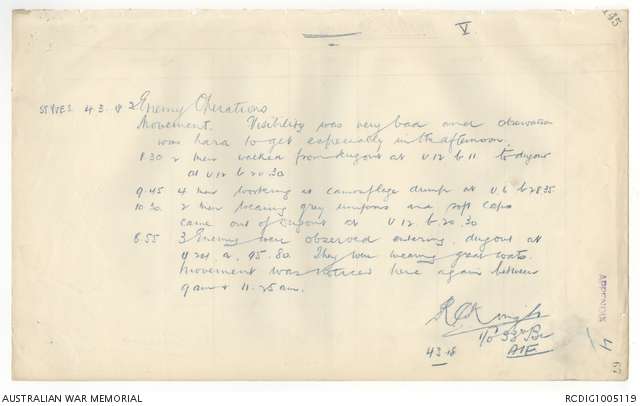 V
195
ST YVES 4.3.18 2 Enemy Operations
Movement. Visibility was very bad and observation
was hard to get especially in the afternoon.
1.30 2 men walked from dugout at U 12 b 11 to dugout
at U 12 b 20.30
9.45 4 men working at camouflage dump at U 6 b 28 35
10.30 2 men wearing grey uniforms and soft caps
came out of dugout at U 12 b. 20. 30
8.55 3 Enemy were observed entering dugout at
a. 95.80. They were wearing great coats.
Movement was noticed here again between
9 am & 11.25 am.
I/O 33rd Bn
4 3 18 AIF
APPENDIX 4
AUSTRALIAN WAR MEMORIAL
RCDIG1005119